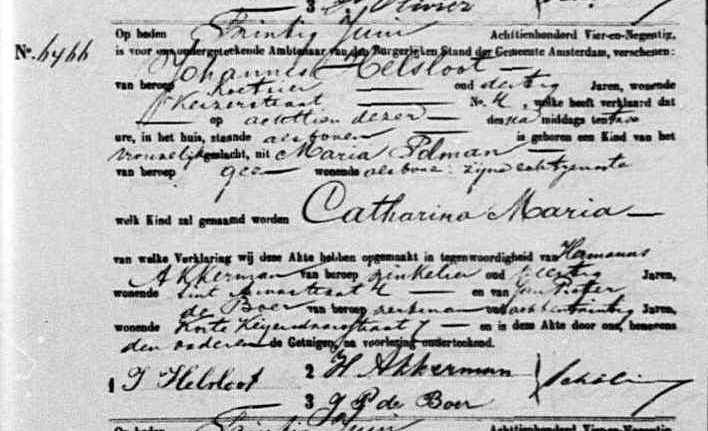 3
Op heden Twintig Juni Achttienhonderd Vier-en-Negentig,
No. 6466 is voor ons ondergeteekende Ambtenaar van den Burgerlijken Stand der Gemeente Amsterdam, verschenen:
Johannes Helsloot
van beroep oud dertig Jaren, wonende
Keizerstraat No. 4, welke heeft verklaard dat
op achttien dezer des na middags ten twee
ure, in het huis, staande als boven is geboren een Kind van het
vrouwelijk geslacht, uit Maria Polman
van beroep geen wonende als boven: zijne echtgenoote
welk Kind zal genaamd worden Catharina Maria
van welke Verklaring wij deze Akte hebben opgemaakt in tegenwoordigheid van Hermanus
Akkerman van beroep winkelier oud veertig Jaren,
wonende Sint Annastraat 4 en van Jan Pieter
de Boer van beroep werkman oud Jaren,
wonende Korte 7 en is deze Akte door ons, benevens
den vader en de Getuigen, na voorlezing onderteekend.
1 J Helsloot 2 H Akkerman
3 J P de Boer
Op heden Twintig Juni Achttienhonderd Vier-en-Negentig,